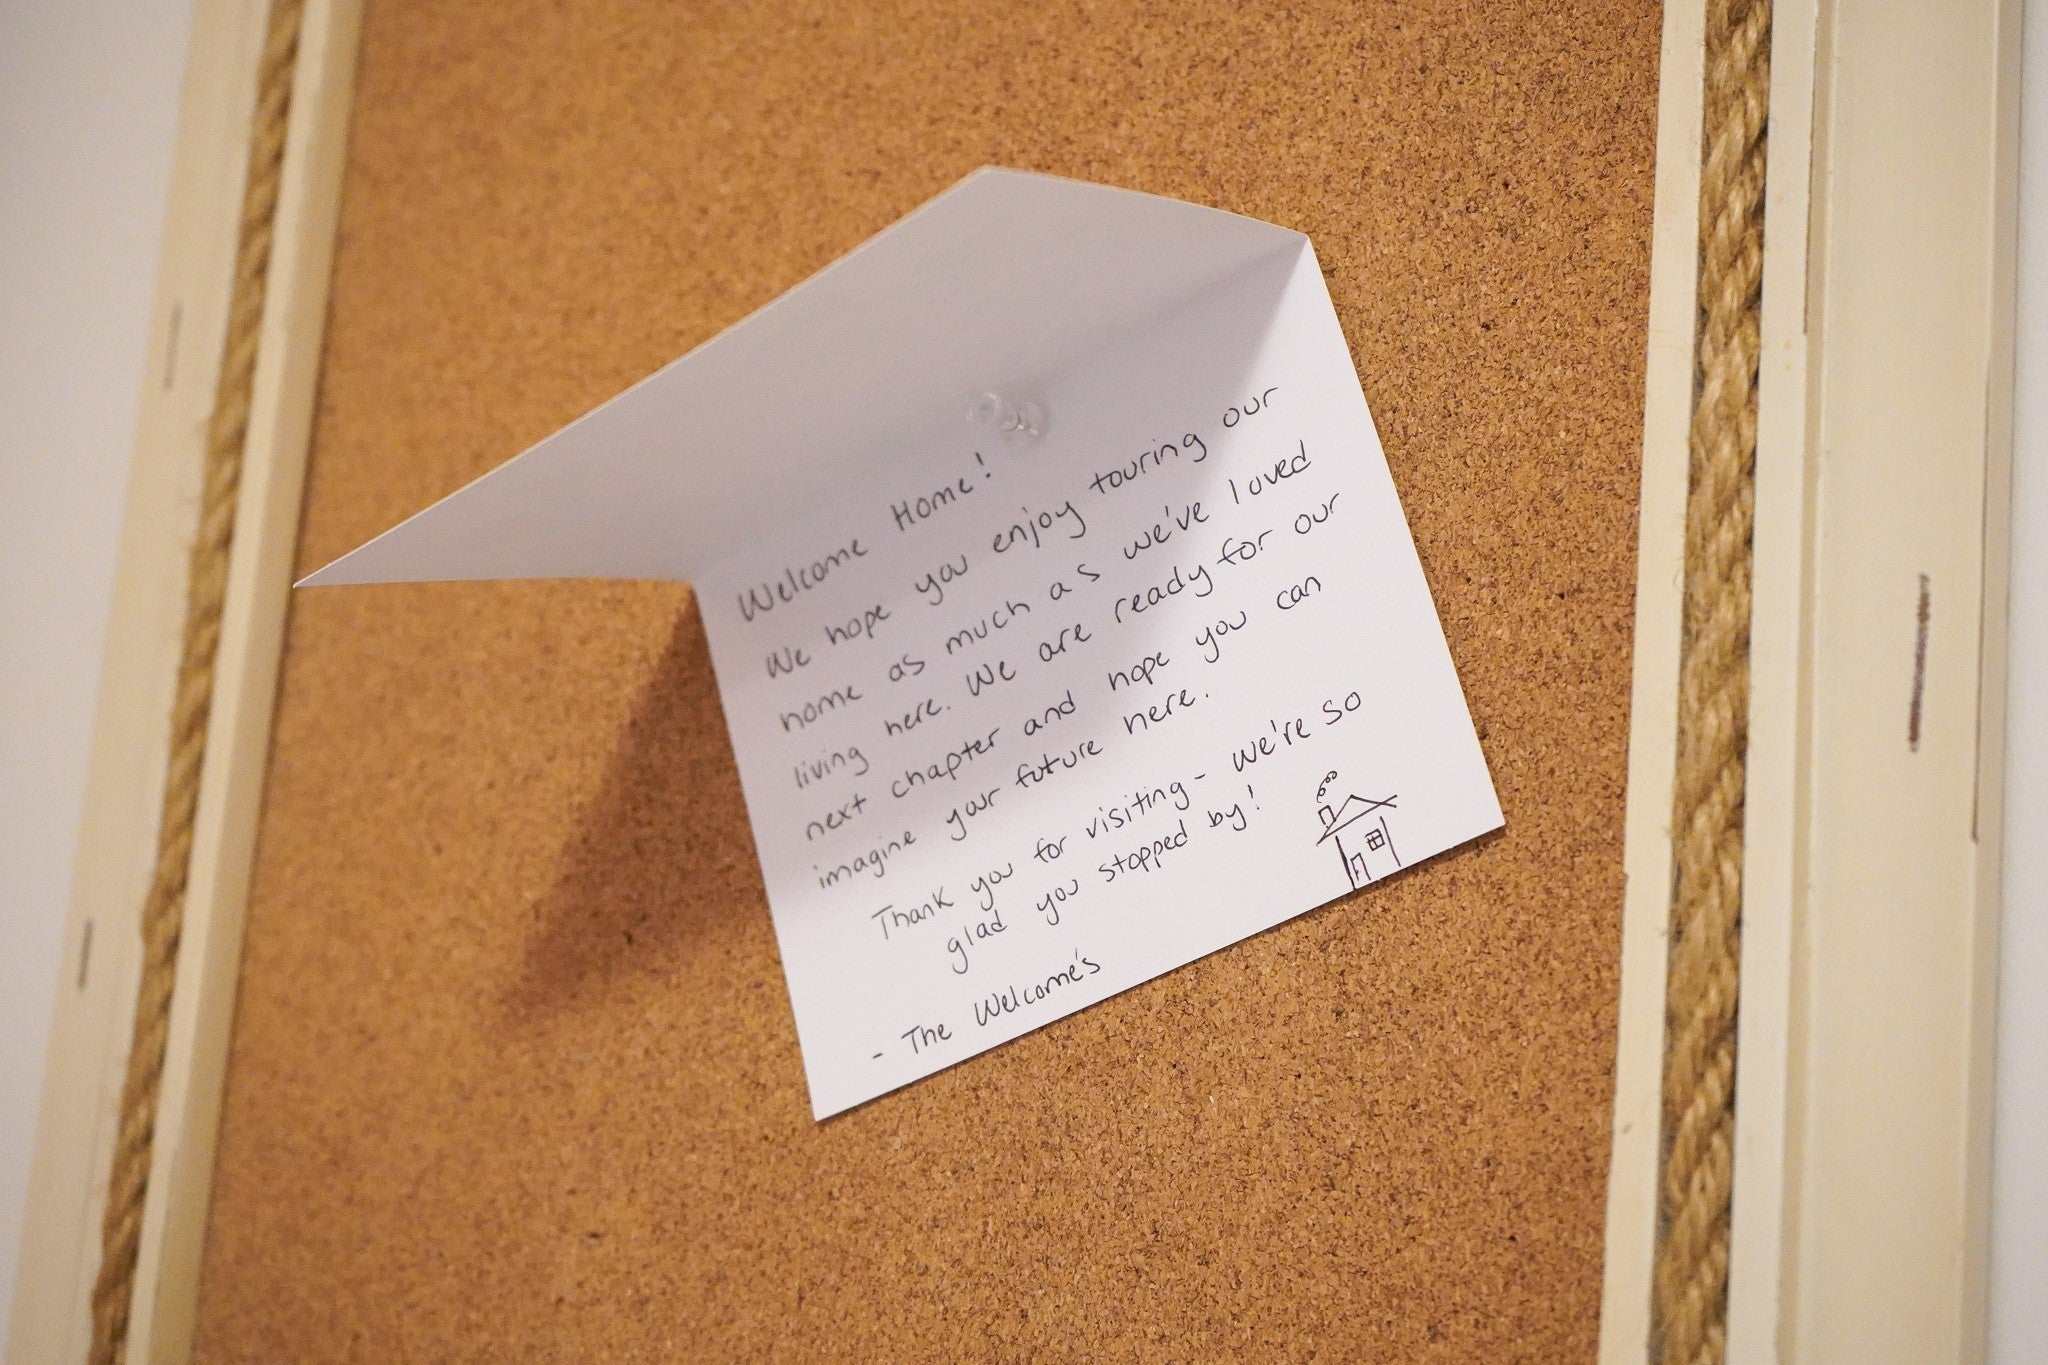 Welcome Home!
We hope you enjoy touring our
home as much as we've loved
living here. We are ready for our
next chapter and hope you can
imagine your future here.
Thank you for visiting - we're so
glad you stopped by!
- The Welcome's